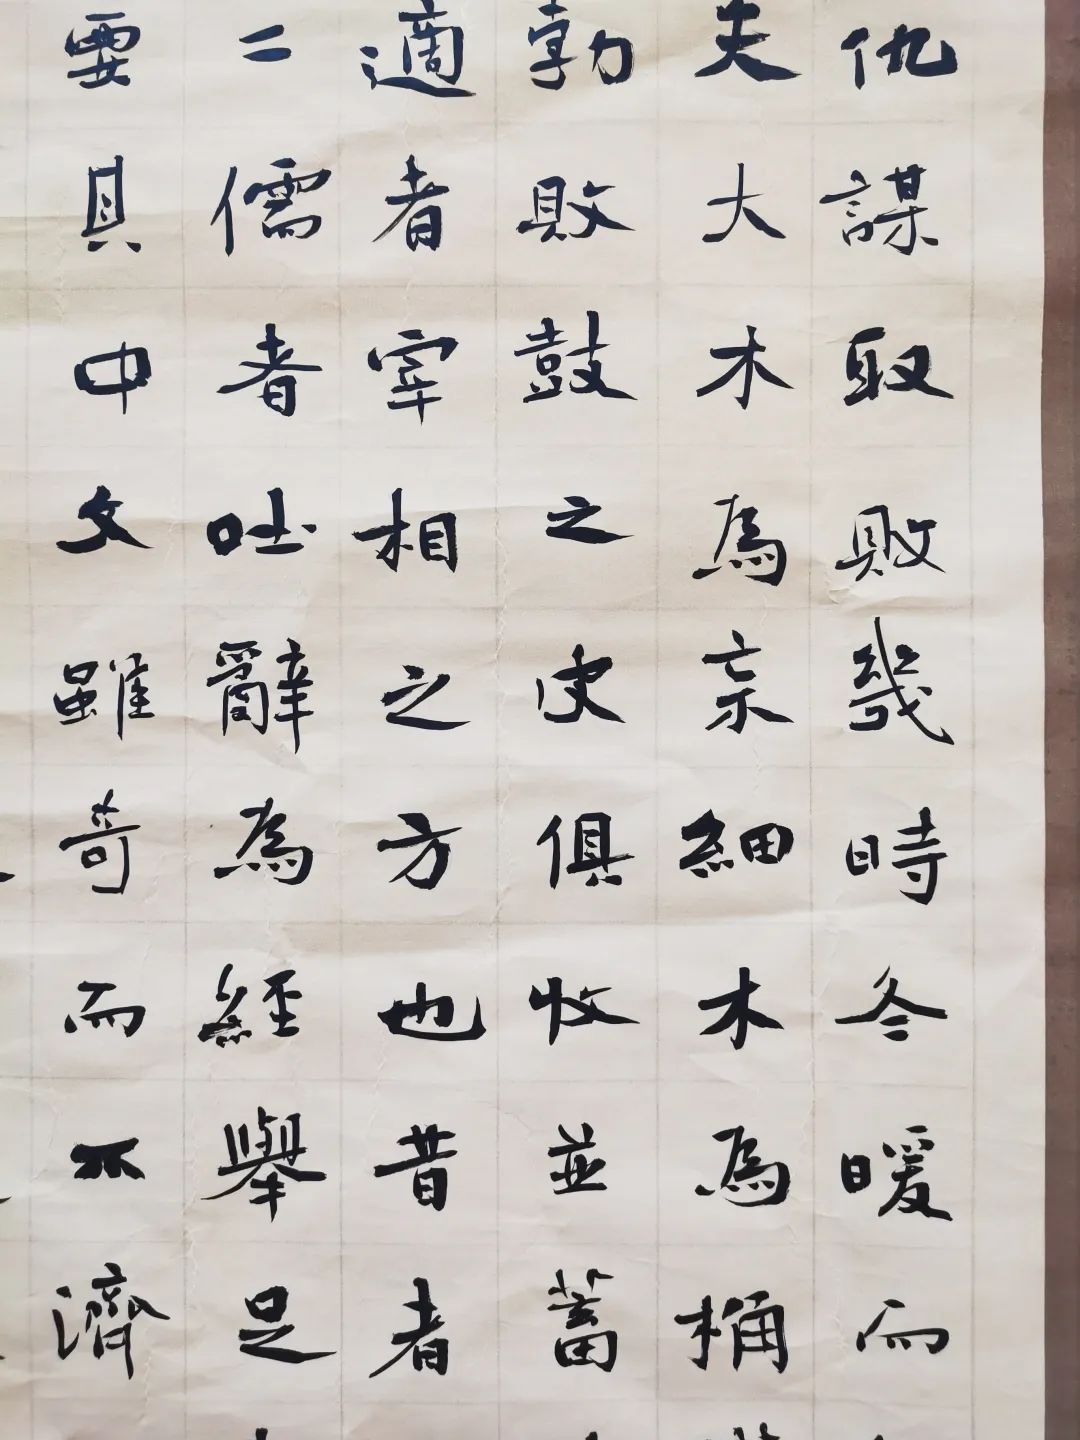 仇謀取敗幾時冬暖而
夫大木為杗細木為桷
勃敗鼓之皮俱收並蓄
適者宰相之方也昔者
二儒者吐辭為經舉足
要具中文雖奇而不濟